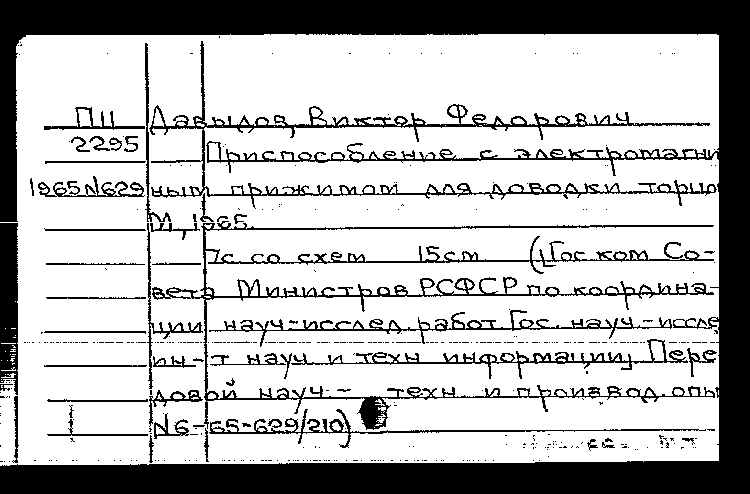 П11 Давыдов, Виктор Федорович
2295 Приспособление с электромагни
1965 N629 ным прижимом для доводки торцо
М, 1965.
7с со схем 15см (Гос ком Со-
вета Министров РСФСР по координа-
ции науч-исслед. работ Гос. науч.-иссле
ин-т науч и техн информации, Пере
довой науч- техн и производ. опы
N6-65-629/210)